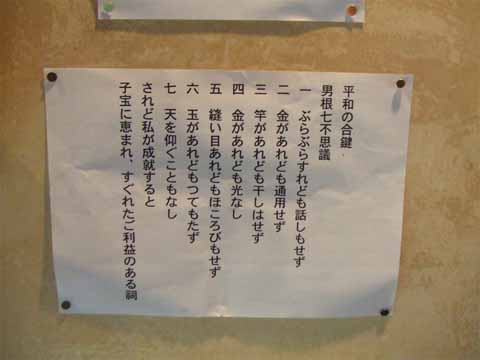 平和の合鍵
男根七不思議
一 ぶらぶらすれども話しもせず
二 金があれども通用せず
三 竿があれども干しはせず
四 金があれども光なし
五 縫い目あれどもほころびもせず
六 玉があれどもつてもたず
七 天を仰ぐこともなし
されど私が成就すると
子宝に恵まれ、すぐれたご利益のある祠